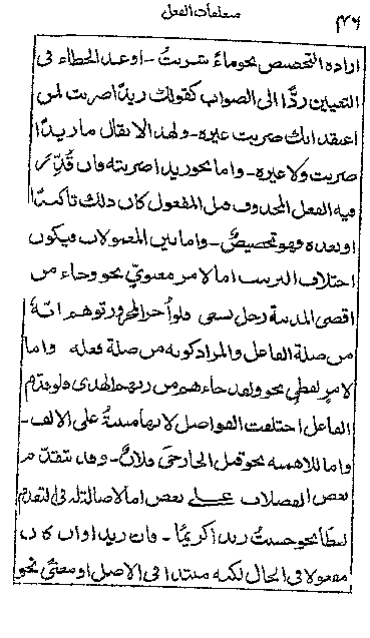 متعلقات الفعل
اراده التخصيص نحو ماءً شربتُ - او عند الخطاء فى
التعيين ردًّا الى الصواب كقولك زيدًا ضربت لمن
اعتقد انك ضربت غيره - ولهذا لا يقال ما زيدًا
ضربت ولا غيره - واما نحو زيدا ضربته فان قُدّر
فيه الفعل المحذوف قبل المفعول كان ذلك تاكيدًا
او بعده فهو تخصيصٌ - واما بين المعمولات فيكون
اختلاف الترتيب اما لامر معنوىّ نحو وجاء من
اقصى المدينة رجل يسعى فلو أُخر المجرور توهم انّهٗ
من صلة الفاعل والمراد كونه من صلة فعله واما
لامرٍ لفظىٍ نحو ولقد جاءهم من ربهم الهدى فلو قدّم
الفاعل اختلفت الفواصل لانها مبنيةٌ على الالف -
واما للاهمية نحو قتل الخارجىَّ فلانٌ - وقد تتقدّم
بعض الفضلات على بعض اما لاصالته فى التقدم
لفظًا نحو حسبتُ زيدا كريمًا - فان زيدا وان كان
مفعولا فى الحال لكنه مبتدا فى الاصل او معنىً نحو